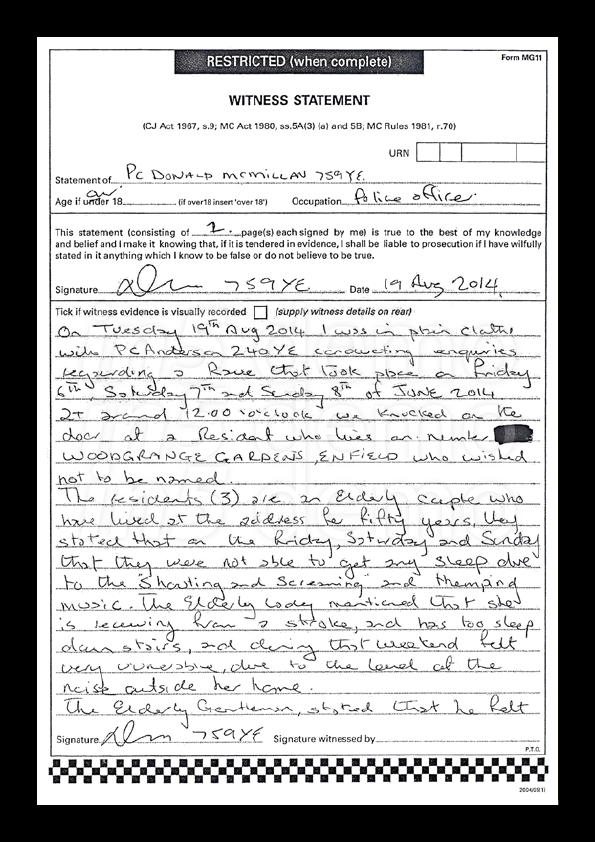 RESTRICTED (when complete)
Form MG11
WITNESS STATEMENT
(CJ Act 1967, s.9; MC Act 1980, ss.5A(3) (a) and 5B; MC Rules 1981, r.70)
URN
Statement of PC DONALD MCMILLAN 759YE
Age if under 18 (if over18 insert 'over 18') Occupation Police officer
This statement (consisting of 2 page(s) each signed by me) is true to the best of my knowledge
and belief and I make it knowing that, if it is tendered in evidence, I shall be liable to prosecution if I have wilfully
stated in it anything which I know to be false or do not believe to be true.
Signature 759YE Date 19 Aug 2014
Tick if witness evidence is visually recorded (supply witness details on rear)
On Tuesday 19th Aug 2014 I was in plain clothes
with PC Anderson 240YE conducting enquiries
regarding a Rave that took place on Friday
6th, Saturday 7th and Sunday 8th of JUNE 2014
at around 12:00 o'clock we knocked on the
door at a Resident who lives on number
WOODGRANGE GARDENS, ENFIELD who wished
not to be named.
The residents (3) are an Elderly couple who
have lived at the address for fifty years, they
stated that on the Friday, Saturday and Sunday
that they were not able to get any sleep due
to the "Shouting and Screaming" and thumping
music. The Elderly lady mentioned that she
is recovering from a stroke, and has too sleep
down stairs, and during that weekend felt
very vunerable, due to the level of the
noise outside her home.
The Elderly Gentleman, stated that he felt
Signature 759YE Signature witnessed by
P.T.O.
2004/05(1)